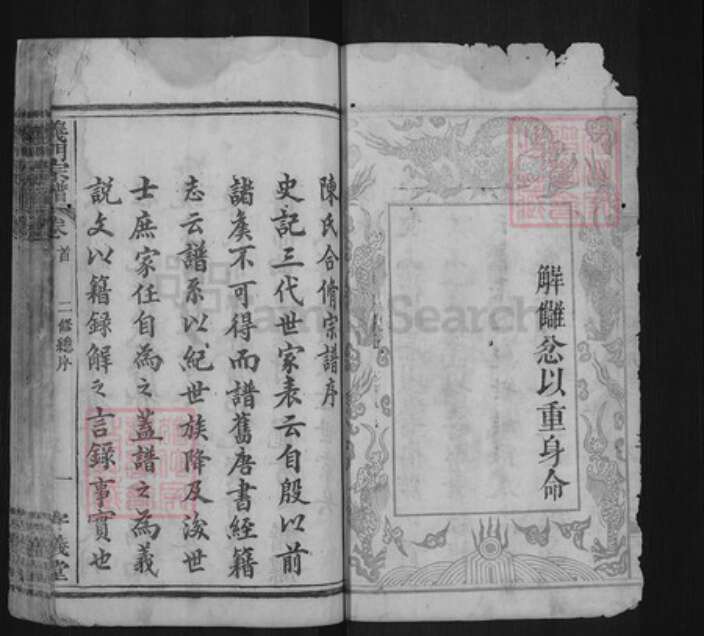 解讎忿以重身命
陳氏合脩宗譜序
史記三代世家表云自殷以前
諸矦不可得而譜舊唐書經籍
志云譜系以紀世族降及後世
士庶家任自為之蓋譜之為義
說文以籍録解之言錄事實也
義門宗譜
卷首
二修總序
一
孝義堂
FamilySearch